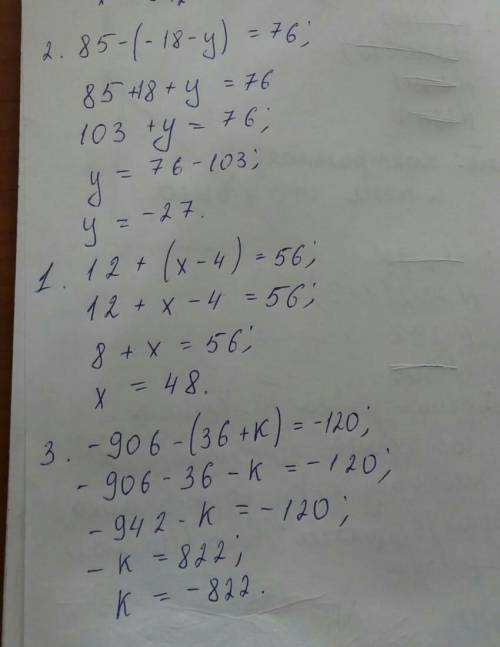 2. 85-(-18-y) = 76;
85+18+y = 76
103 + y = 76;
y = 76-103;
y = -27.
1. 12 + (x-4) = 56;
12 + x - 4 = 56;
8 + x = 56;
x = 48.
3. -906-(36+K) = -120;
-906-36-K = -120;
-942-K = -120;
-K = 822;
K = -822.